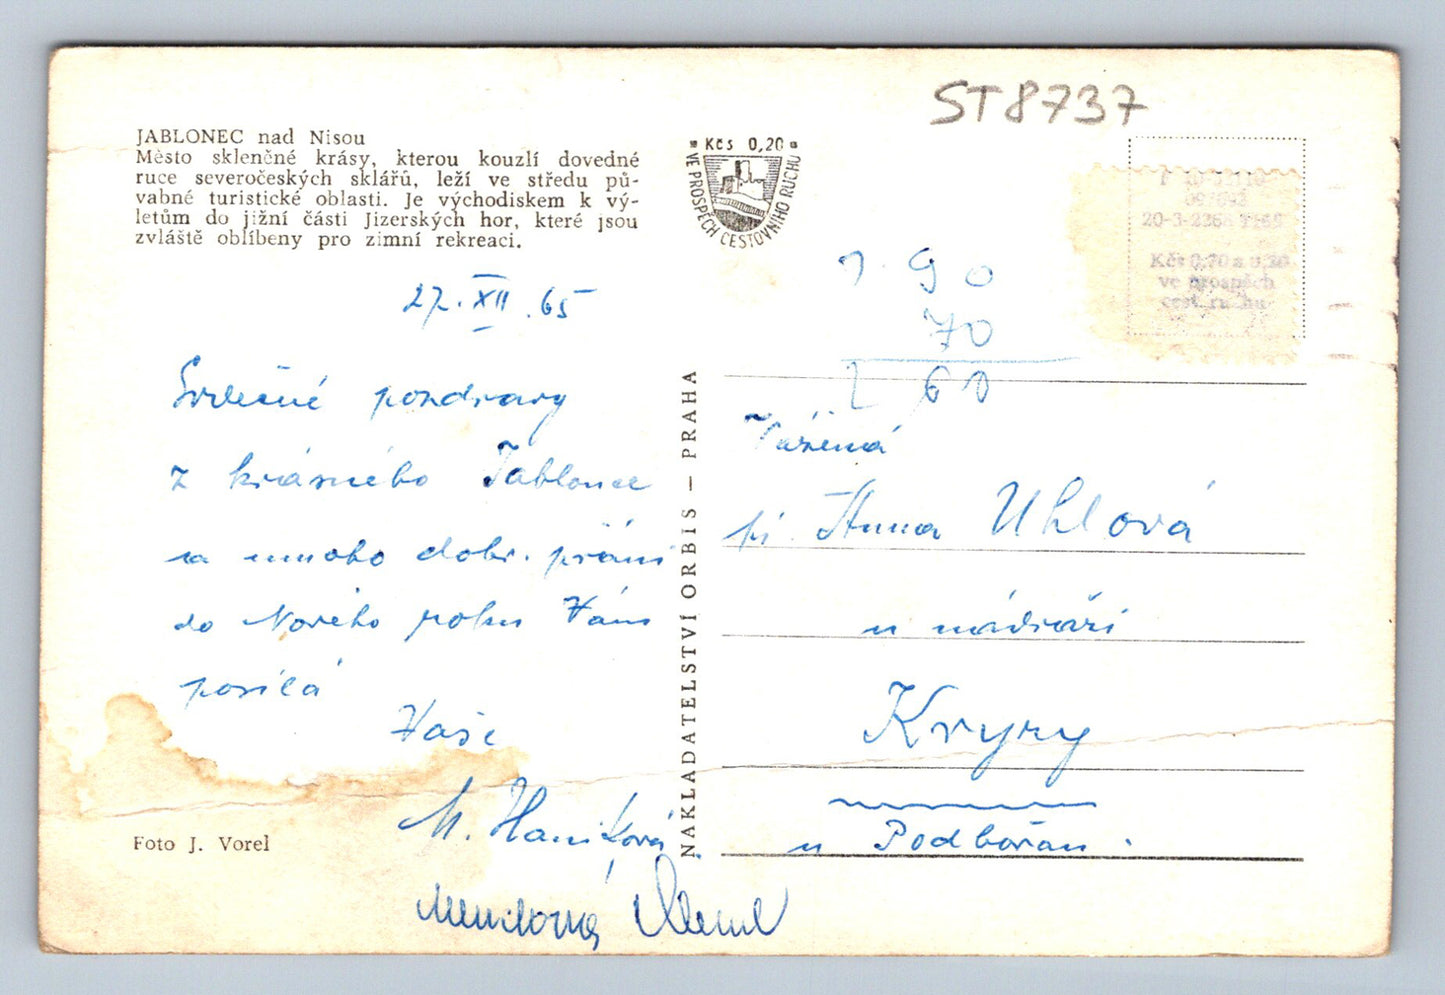 ST8737
JABLONEC nad Nisou
Město sklenčné krásy, kterou kouzlí dovedné
ruce severočeských sklářů, leží ve středu pů-
vabné turistické oblasti. Je východiskem k vý-
letům do jižní části Jizerských hor, které jsou
zvláště oblíbeny pro zimní rekreaci.
Kčs 0,20
VE PROSPĚCH CESTOVNÍHO RUCHU
Kčs 0,70 a 0,20
ve prospěch
cest. ruchu
1 90
70
2 60
27. XII. 65
Srdečné pozdravy
z krásného Jablonce
a mnoho dobr. přání
do Nového roku Vám
posílá
Vaše
M. Haníková
Foto J. Vorel
NAKLADATELSTVÍ ORBIS — PRAHA
Vážená
pí. Anna Uhlová
u nádraží
Kryry
u Podbořan.